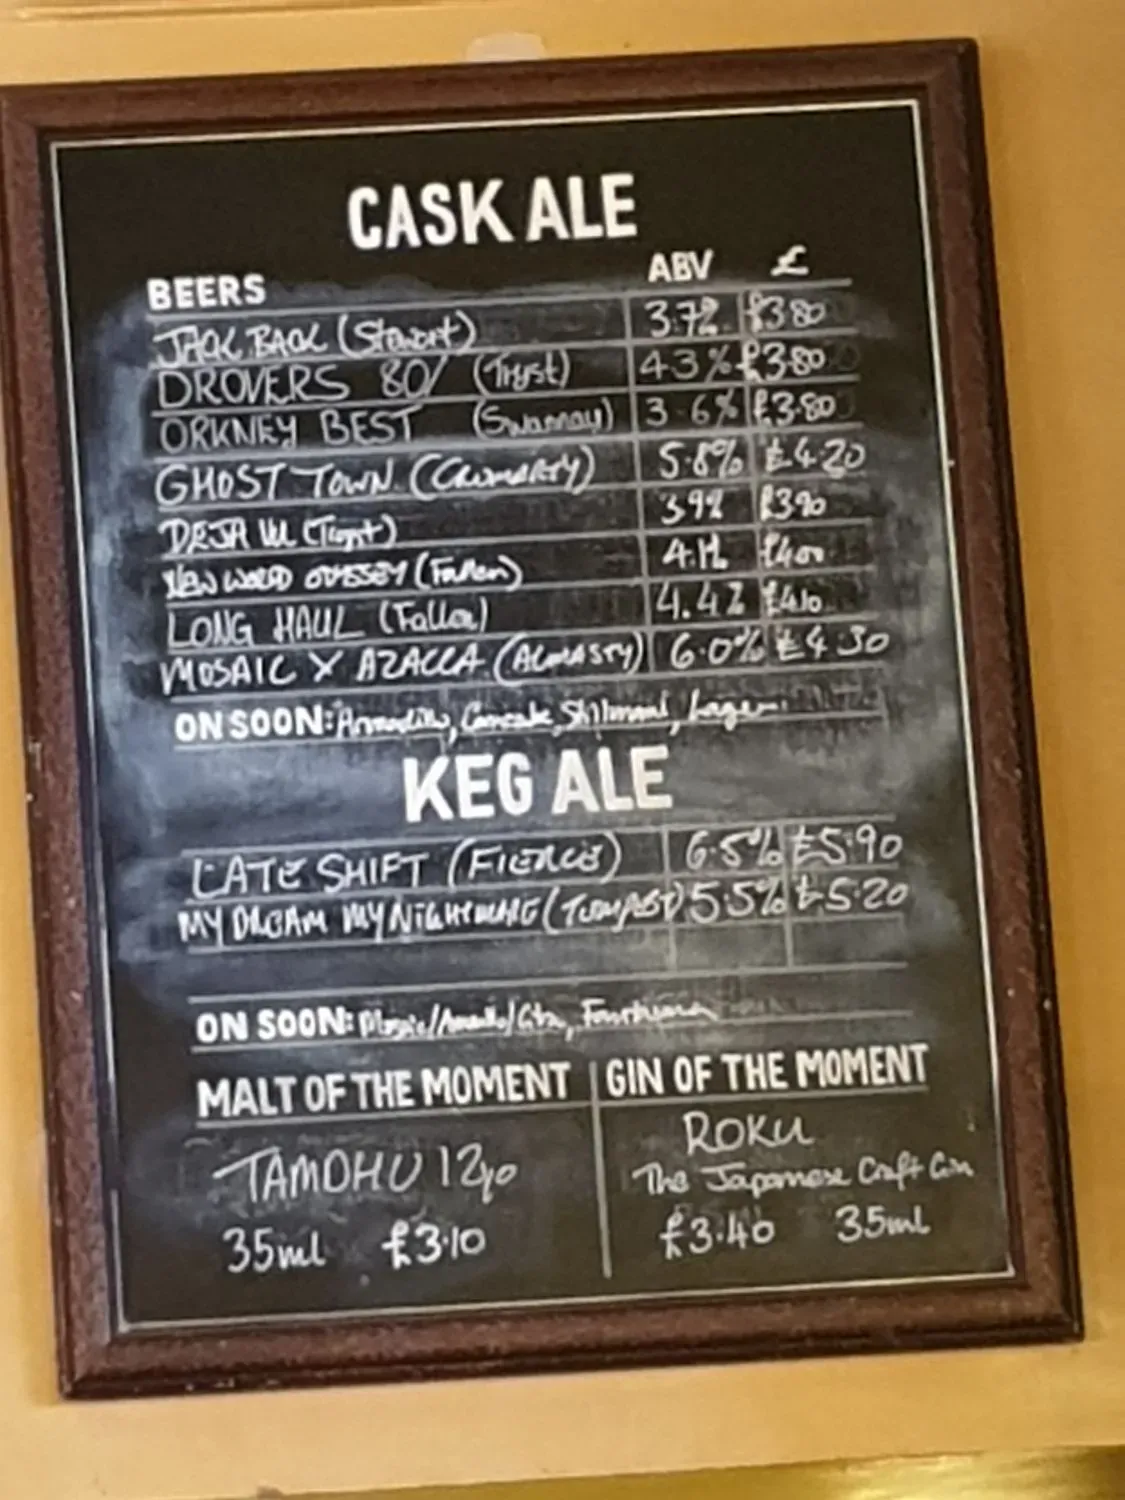 CASK ALE
BEERS ABV £
JACK BACK (Stewart) 3.7% £3.80
DROVERS 80/ (Tryst) 4.3% £3.80
ORKNEY BEST (Swannay) 3.6% £3.80
GHOST TOWN (CROMARTY) 5.8% £4.20
DEJA VU (Tryst) 3.9% £3.90
NEW WORLD ODYSSEY (Fallen) 4.1% £4.00
LONG HAUL (Fallen) 4.4% £4.10
MOSAIC X AZACCA (ALMASTY) 6.0% £4.30
ON SOON: Armadillo, Stillmand, Lager
KEG ALE
LATE SHIFT (FIERCE) 6.5% £5.90
MY DREAM MY NIGHTMARE (TEMPEST) 5.5% £5.20
ON SOON: Mosaic/Amarillo/Citra,
MALT OF THE MOMENT GIN OF THE MOMENT
TAMDHU 12yo ROKU
The Japanese Craft Gin
35ml £3.10 £3.40 35ml